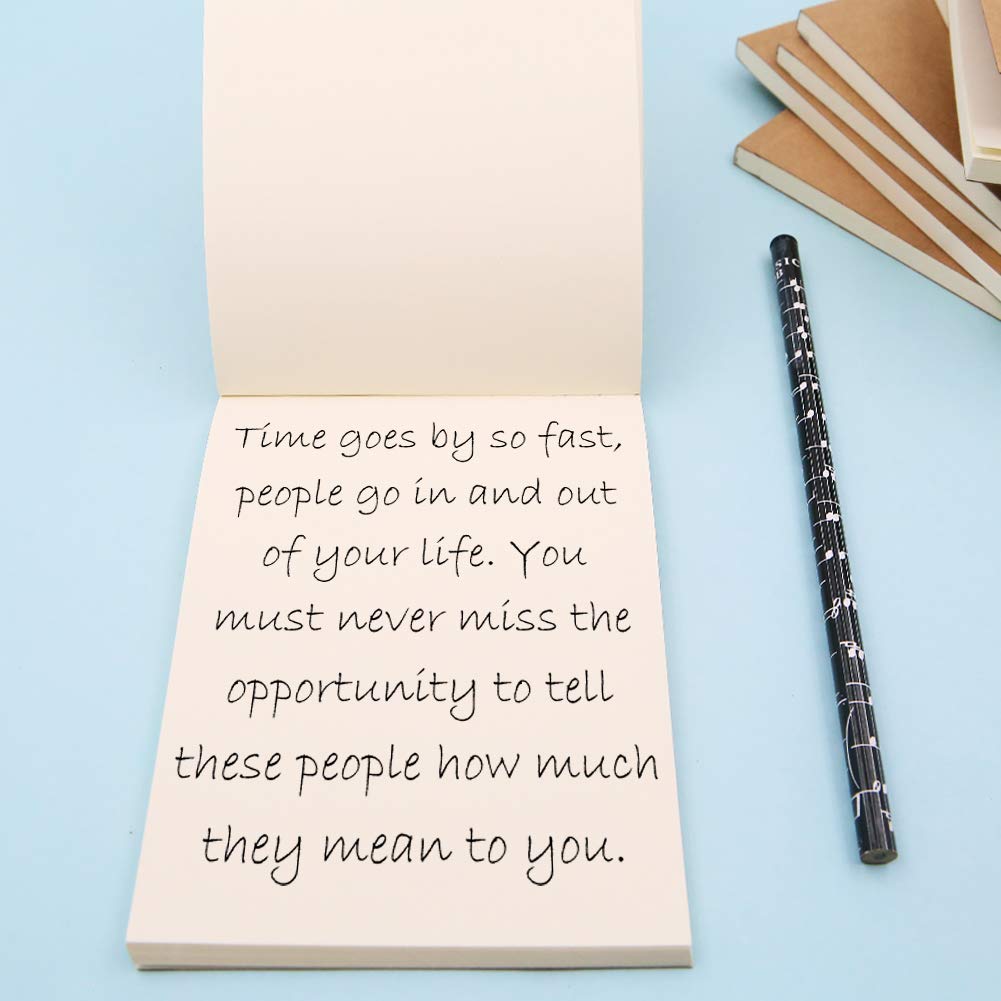 Time goes by so fast,
people go in and out
of your life. You
must never miss the
opportunity to tell
these people how much
they mean to you.